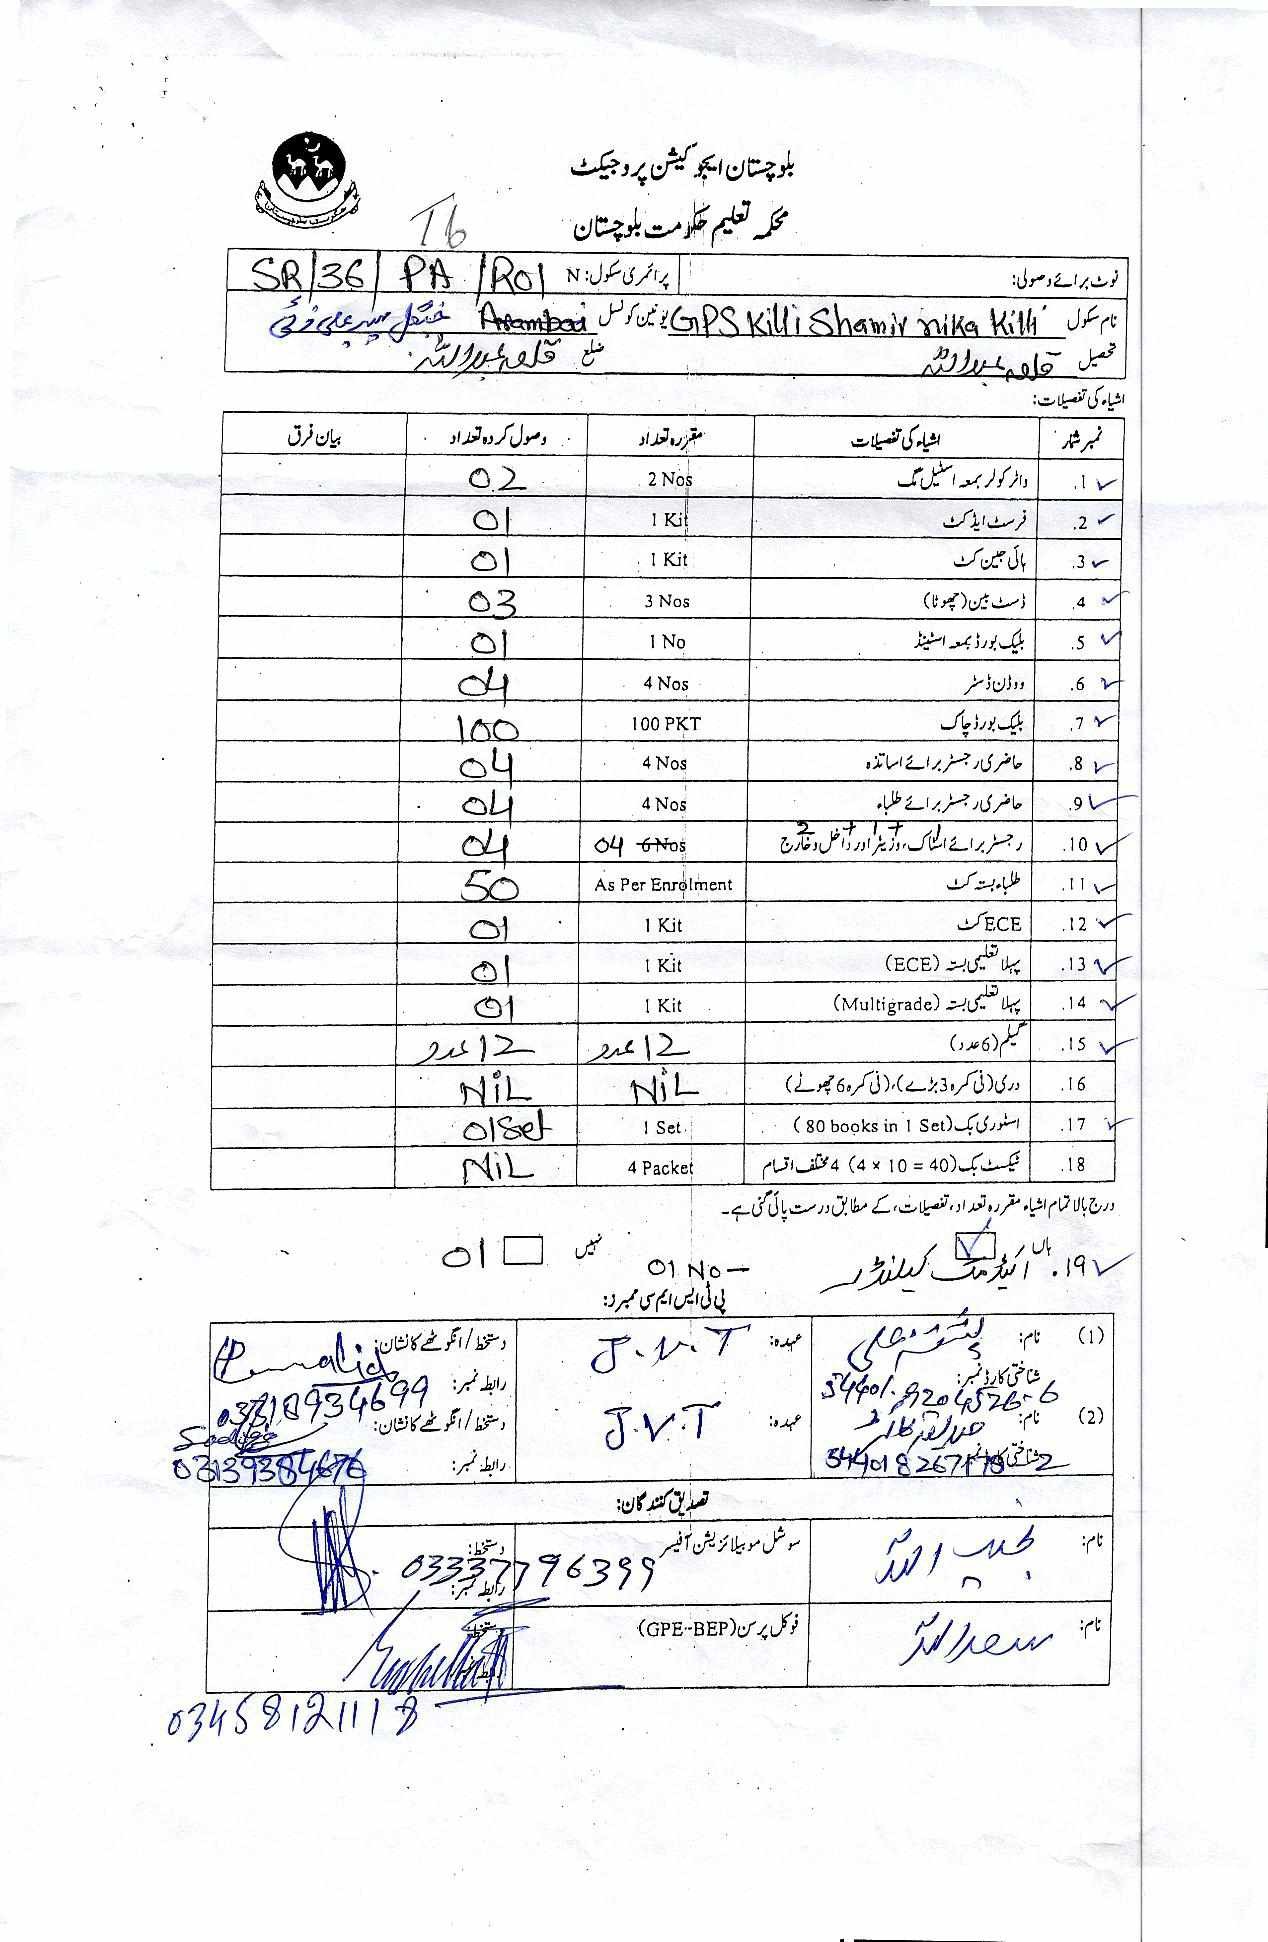 بلوچستان ایجوکیشن پروجیکٹ
محکمہ تعلیم حکومت بلوچستان
T6
نوٹ برائے وصولی: پرائمری سکول: N SR/36/PA/R01
نام سکول GPS Killi Shamir nika Killi یونین کونسل Arambai
تحصیل قلعہ عبداللہ ضلع قلعہ عبداللہ
اشیاء کی تفصیلات:
نمبر شمار اشیاء کی تفصیلات مقررہ تعداد وصول کردہ تعداد بیان فرق
1. واٹر کولر بمعہ اسٹیل مگ 2 Nos 02
2. فرسٹ ایڈ کٹ 1 Kit 01
3. ہائی جین کٹ 1 Kit 01
4. ڈسٹ بین (چھوٹا) 3 Nos 03
5. بلیک بورڈ بمعہ اسٹینڈ 1 No 01
6. ووڈن ڈسٹر 4 Nos 04
7. بلیک بورڈ چاک 100 PKT 100
8. حاضری رجسٹر برائے اساتذہ 4 Nos 04
9. حاضری رجسٹر برائے طلباء 4 Nos 04
10. رجسٹر برائے اسٹاک، وزیٹر اور داخل و خارج 2+1+1 6 Nos 04 04
11. طلباء بستہ کٹ As Per Enrolment 50
12. ECE کٹ 1 Kit 01
13. پہلا تعلیمی بستہ (ECE) 1 Kit 01
14. پہلا تعلیمی بستہ (Multigrade) 1 Kit 01
15. گلیم (6 عدد) 12 عدد 12 عدد
16. دری (فی کمرہ 3 بڑے)، (فی کمرہ 6 چھوٹے) NiL NiL
17. اسٹوری بک (80 books in 1 Set) 1 Set 01 Set
18. ٹیکسٹ بک (4 × 10 = 40) 4 مختلف اقسام 4 Packet NiL
درج بالا تمام اشیاء مقررہ تعداد، تفصیلات، کے مطابق درست پائی گئی ہے۔
ہاں نہیں
19. اکیڈمک کیلنڈر 01 No 01
پی ٹی ایس ایم سی ممبرز:
(1) نام: عہدہ: J.V.T دستخط / انگوٹھے کا نشان:
شناختی کارڈ نمبر: رابطہ نمبر: 03318934699
(2) نام: عہدہ: J.V.T دستخط / انگوٹھے کا نشان:
شناختی کارڈ نمبر: رابطہ نمبر:
تصدیق کنندگان:
نام: سوشل موبیلائزیشن آفیسر دستخط:
رابطہ نمبر: 03337796399
نام: سعداللہ فوکل پرسن (GPE-BEP) دستخط:
03458121118